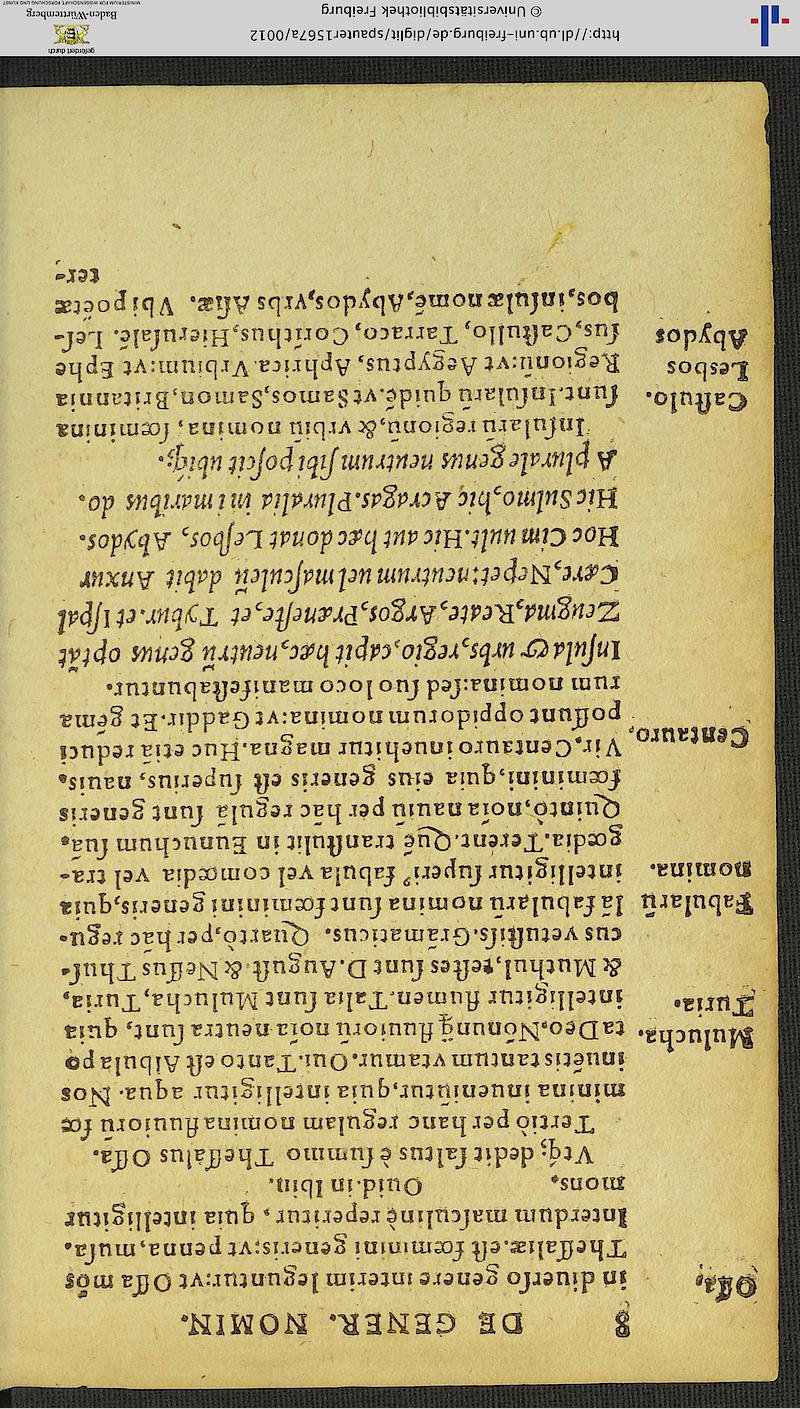 8 DE GENER. NOMIN.
in diuerso genere interim leguntur: vt Ossa mõs
Thessaliæ, est fœminini generis: vt penna, musa.
Interdum masculinè reperitur, quia intelligitur
mons. Ouid. in Ibin.
Vtq; dedit saltus è summo Thessalus Ossa.
Tertiò per hanc regulam nomina fluuiorũ fœ
minina inueniuntur, quia intelligitur aqua. Nos
inuẽtis tantum vtamur. Oui. Tanto est Albula põ
ta Deo. Nonnunq̃ fluuiorũ noĩa neutra sunt, quia
intelligitur flumen. Talia sunt Mulucha, Turia,
& Muthul, testes sunt D. August. & Nessus Thus-
cus vetustiss. Gramaticus. Quartò, per hãc regu-
lã fabularũ nomina sunt fœminini generis, quia
intelligitur super, fabula vel comœdia vel tra-
gœdia. Terent. Quẽ transtulit in Eunuchum suã.
Quintò, noĩa nauiũ per hãc regulã sunt generis
fœminini, quia eius generis est superius, nauis.
Vir. Centauro inuehitur magna. Huc etiã reduci
possunt oppidorum nomina: vt Gaddir. Et gẽma
rum nomina: sed suo loco manifestabuntur.
Insula & urbs, regio, capit hæc, neutrũ genus optãt
Zeugma, Reate, Argos, Præneste, et Tybur, et Ispal
Cære, Nepet: neutrum uel masculeũ dabit Anxur
Hoc Cim uult. Hic aut hæc donat Lesbos, Abydos.
Hic Sulmo, hic Acragas. Pluralia in i maribus do.
A plurale genus neutrum sibi poscit ubiq;.
Insularũ regionũ, & vrbiũ nomina, fœminina
sunt. Insularũ quidẽ. vt Samos, Samon, Britannia
Regionũ: vt Aegyptus, Aphrica. Vrbium: vt Ephe
sus, Castulo, Tarraco, Corithus, Hierusalẽ. Les-
bos, insulæ nomẽ, Abydos, vrbs Asiæ. Vbi poetæ
ter-
Ossa.
Mulucha.
Turia.
Fabularũ
nomina.
Centauro.
Castulo.
Lesbos
Abydos
http://dl.ub.uni-freiburg.de/diglit/spauter1567a/0012
© Universitätsbibliothek Freiburg
gefördert durch
Baden-Württemberg
MINISTERIUM FÜR WISSENSCHAFT, FORSCHUNG UND KUNST